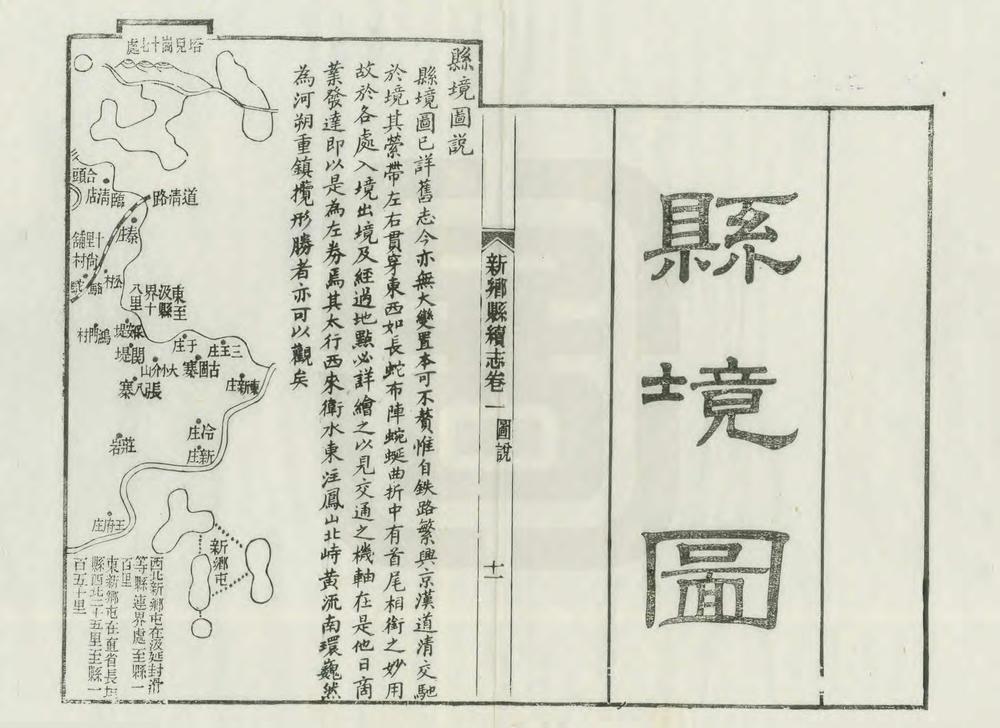 縣境圖
新鄉縣續志卷一
圖說
十一
縣境圖說
縣境圖已詳舊志今亦無大變置本可不贅惟自鉄路繁興京漢道清交馳
於境其縈帶左右貫穿東西如長蛇布陣蜿蜒曲折中有首尾相銜之妙用
故於各處入境出境及經過地點必詳繪之以見交通之機軸在是他日商
業發達即以是為左券焉其太行西來衛水東注鳳山北峙黃流南環巍然
為河朔重鎮攬形勝者亦可以觀矣
塔兒崗十七處
道清路
臨清店
秦庄
十里舖
尚村
公村
東至汲縣界十八里
鴻門村
關堤
于庄
三王庄
古固寨
大小介山
張八寨
東新庄
冷庄
新庄
莊岩
王府庄
新鄉屯
西北新鄉屯在汲延封滑
等縣連界處至縣一
百里
東新鄉屯在直省長垣
縣西北二十五里至縣一
百五十里